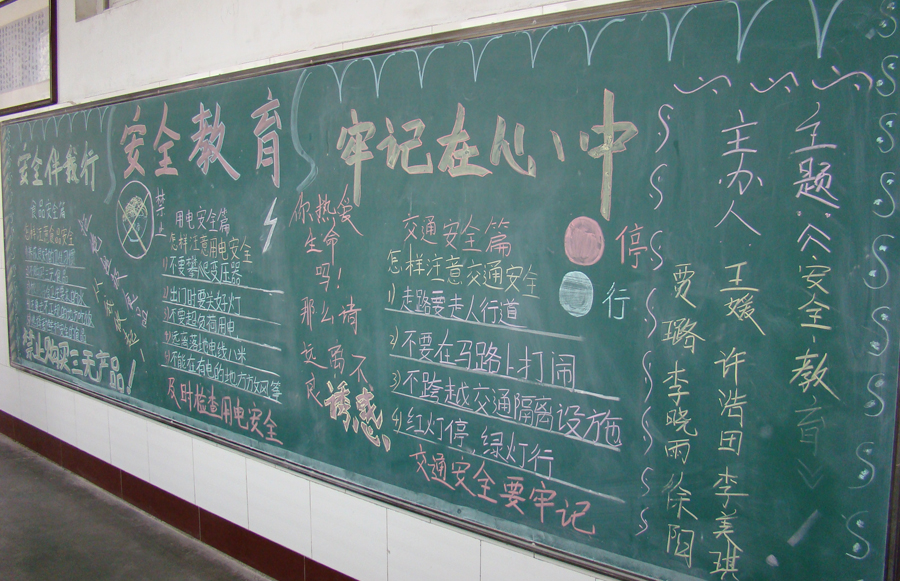 安全伴我行
安全教育
牢记在心中
食品安全篇
怎样注意食品安全
禁止购买三无产品！
禁止
用电安全篇
怎样注意用电安全
1）不要攀爬变压器
2）出门时要关好灯
3）不要超负荷用电
4）远离落地电线八米
5）不能在有电的地方放风筝
及时检查用电安全
你热爱
生命
吗！
那么请
远离不
良
诱惑
交通安全篇
怎样注意交通安全
1）走路要走人行道
2）不要在马路上打闹
3）不跨越交通隔离设施
4）红灯停 绿灯行
交通安全要牢记
停
行
主题：《安全教育》
主办人
王媛 许浩田 李美琪
贾璐 李晓雨 徐阳